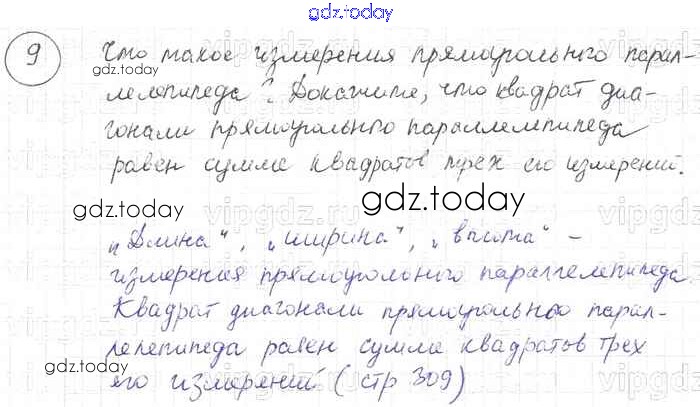 gdz.today
9 Что такое измерения прямоугольного парал-
gdz.today
лелепипеда? Докажите, что квадрат диа-
гонали прямоугольного параллелепипеда
равен сумме квадратов трех его измерений.
gdz.today
gdz.today
„Длина“, „ширина“, „высота“ –
измерения прямоугольного параллелепипеда.
Квадрат диагонали прямоугольного парал-
лелепипеда равен сумме квадратов трех
gdz.today
его измерений (стр 309)
gdz.today